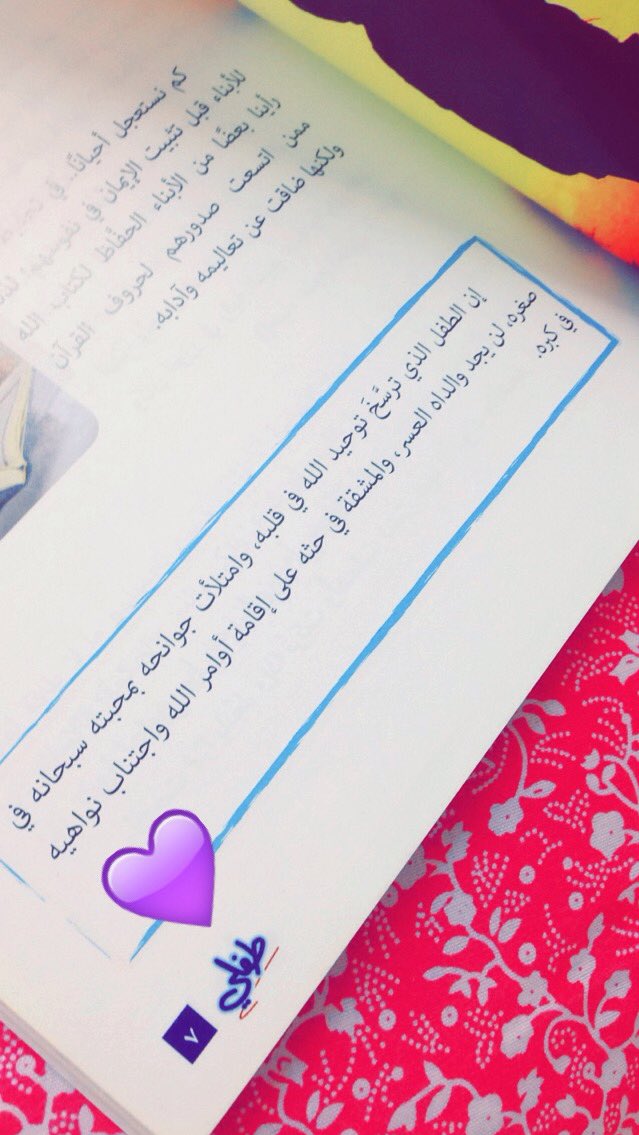 كم نستعجل أحيانًا.. في
للأبناء قبل تثبيت الإيمان في نفوسهم؛
رأينا بعضًا من الأبناء الحفّاظ لكتاب الله
ممن اتسعت صدورهم لحروف القرآن
ولكنها ضاقت عن تعاليمه وآدابه.
إن الطفل الذي ترسَّخَ توحيد الله في قلبه، وامتلأت جوانحه بمحبته سبحانه في
صغره، لن يجد والداه العسر، والمشقة في حثه على إقامة أوامر الله واجتناب نواهيه
في كبره.
طفلي
٧